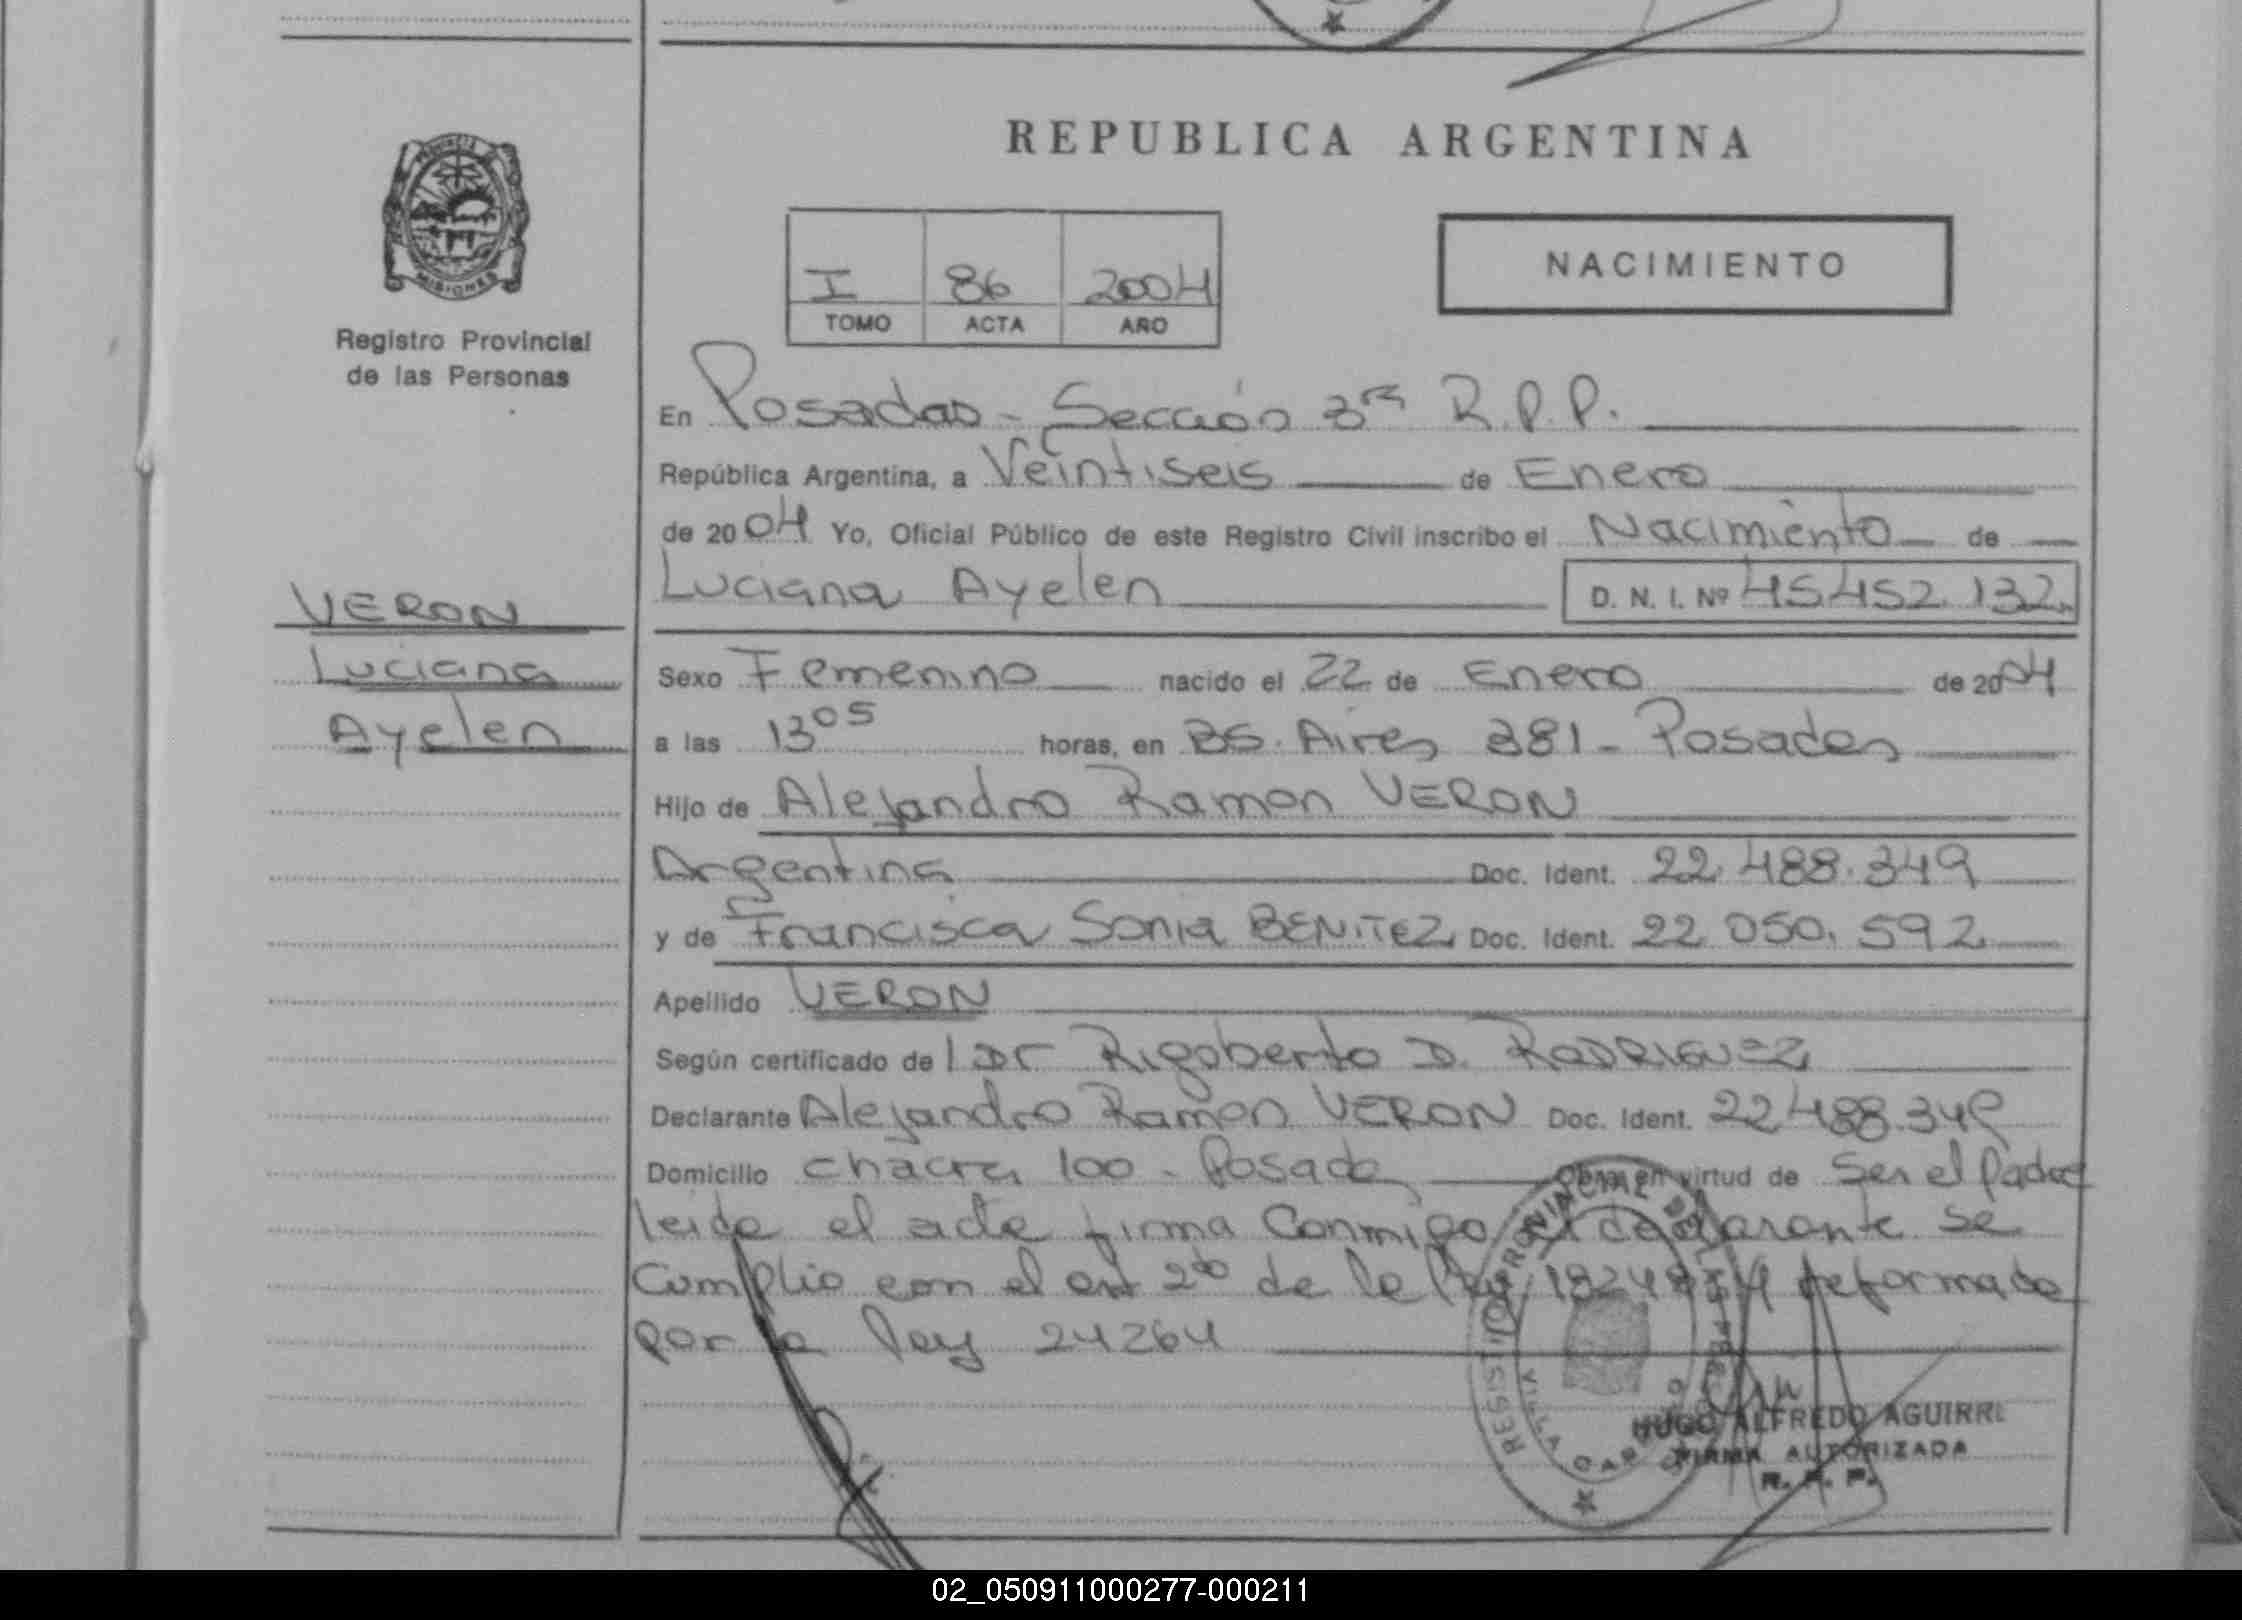 REPUBLICA ARGENTINA
PROVINCIA DE
MISIONES
Registro Provincial
de las Personas
I 86 2004
TOMO ACTA AÑO
NACIMIENTO
En Posadas - Sección 3ra R.P.P.
República Argentina, a Veintiseis de Enero
de 2004 Yo, Oficial Público de este Registro Civil inscribo el Nacimiento de
Luciana Ayelen D. N. I. Nº 45.452.132
VERON
Luciana
Ayelen
Sexo Femenino nacido el 22 de Enero de 2004
a las 13 05 horas, en BS. Aires 381 - Posadas
Hijo de Alejandro Ramon VERON
Argentina Doc. Ident. 22.488.349
y de Francisca Sonia BENITEZ Doc. Ident. 22.050.592
Apellido VERON
Según certificado del Dr Rigoberto D. RODRIGUEZ
Declarante Alejandro Ramon VERON Doc. Ident. 22.488.349
Domicilio chacra 100 - Posadas Obra en virtud de Ser el Padre
leida el acta firma Conmigo el declarante se
Cumplio con el art 2do de la ley reformada
por la ley 24264
REGISTRO PROVINCIAL DE LAS PERSONAS
HUGO ALFREDO AGUIRRE
FIRMA AUTORIZADA
R. P. P.
02_050911000277-000211